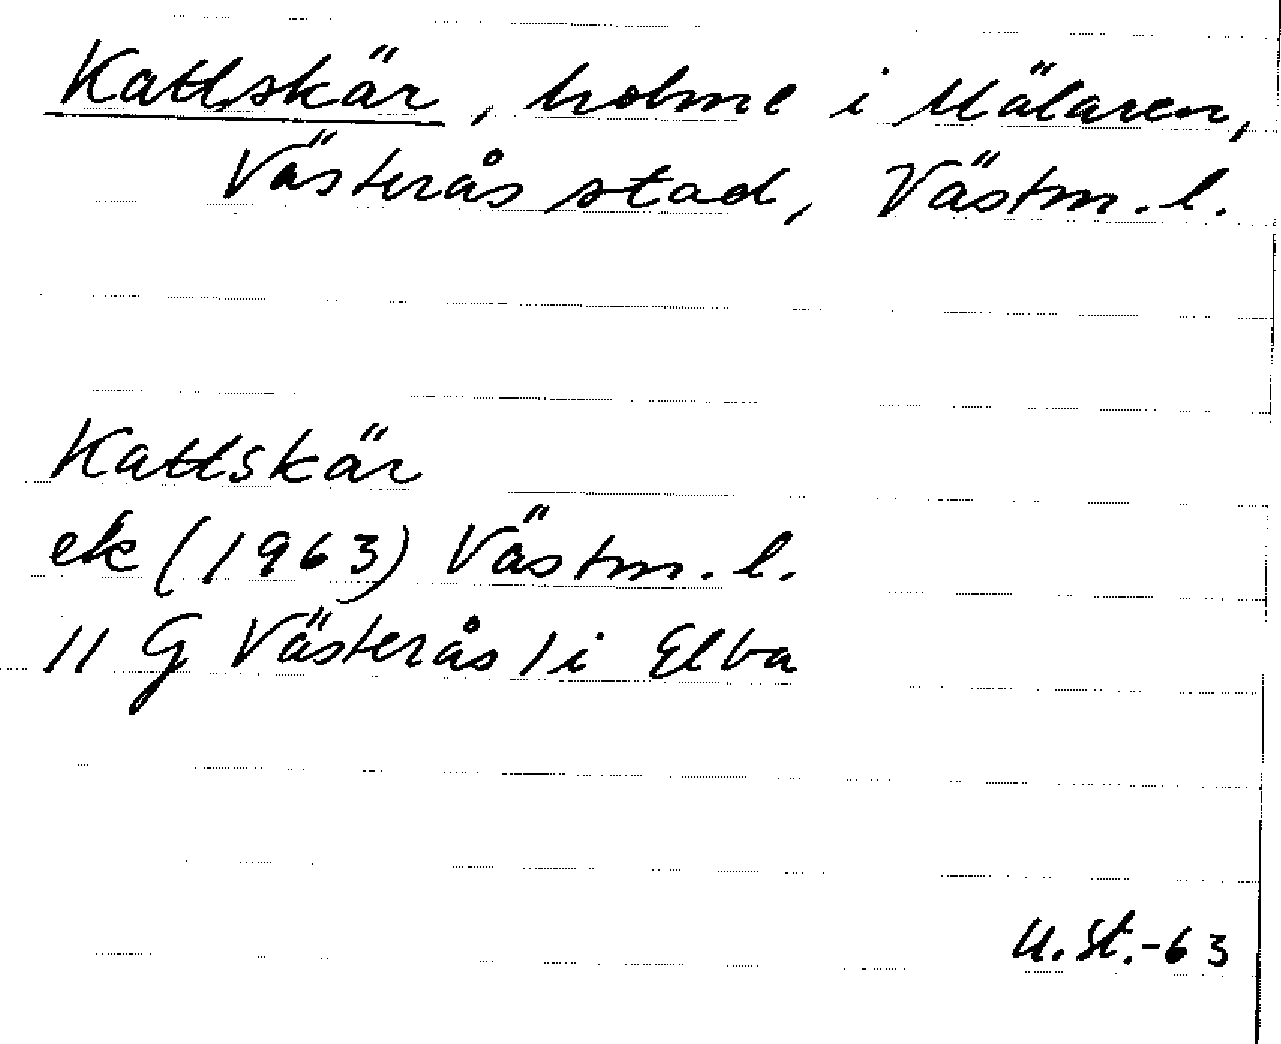 Kattskär, holme i Mälaren,
Västerås stad, Västm. l.
Kattskär
ek (1963) Västm. l.
11 G Västerås 1 i Elba
U.St.-63